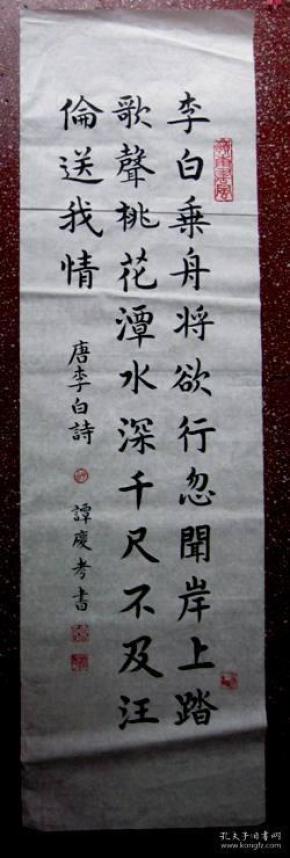 李白乗舟将欲行忽聞岸上踏
歌聲桃花潭水深千尺不及汪
倫送我情
唐李白詩
譚慶孝書
孔夫子旧書网
www.kongfz.com